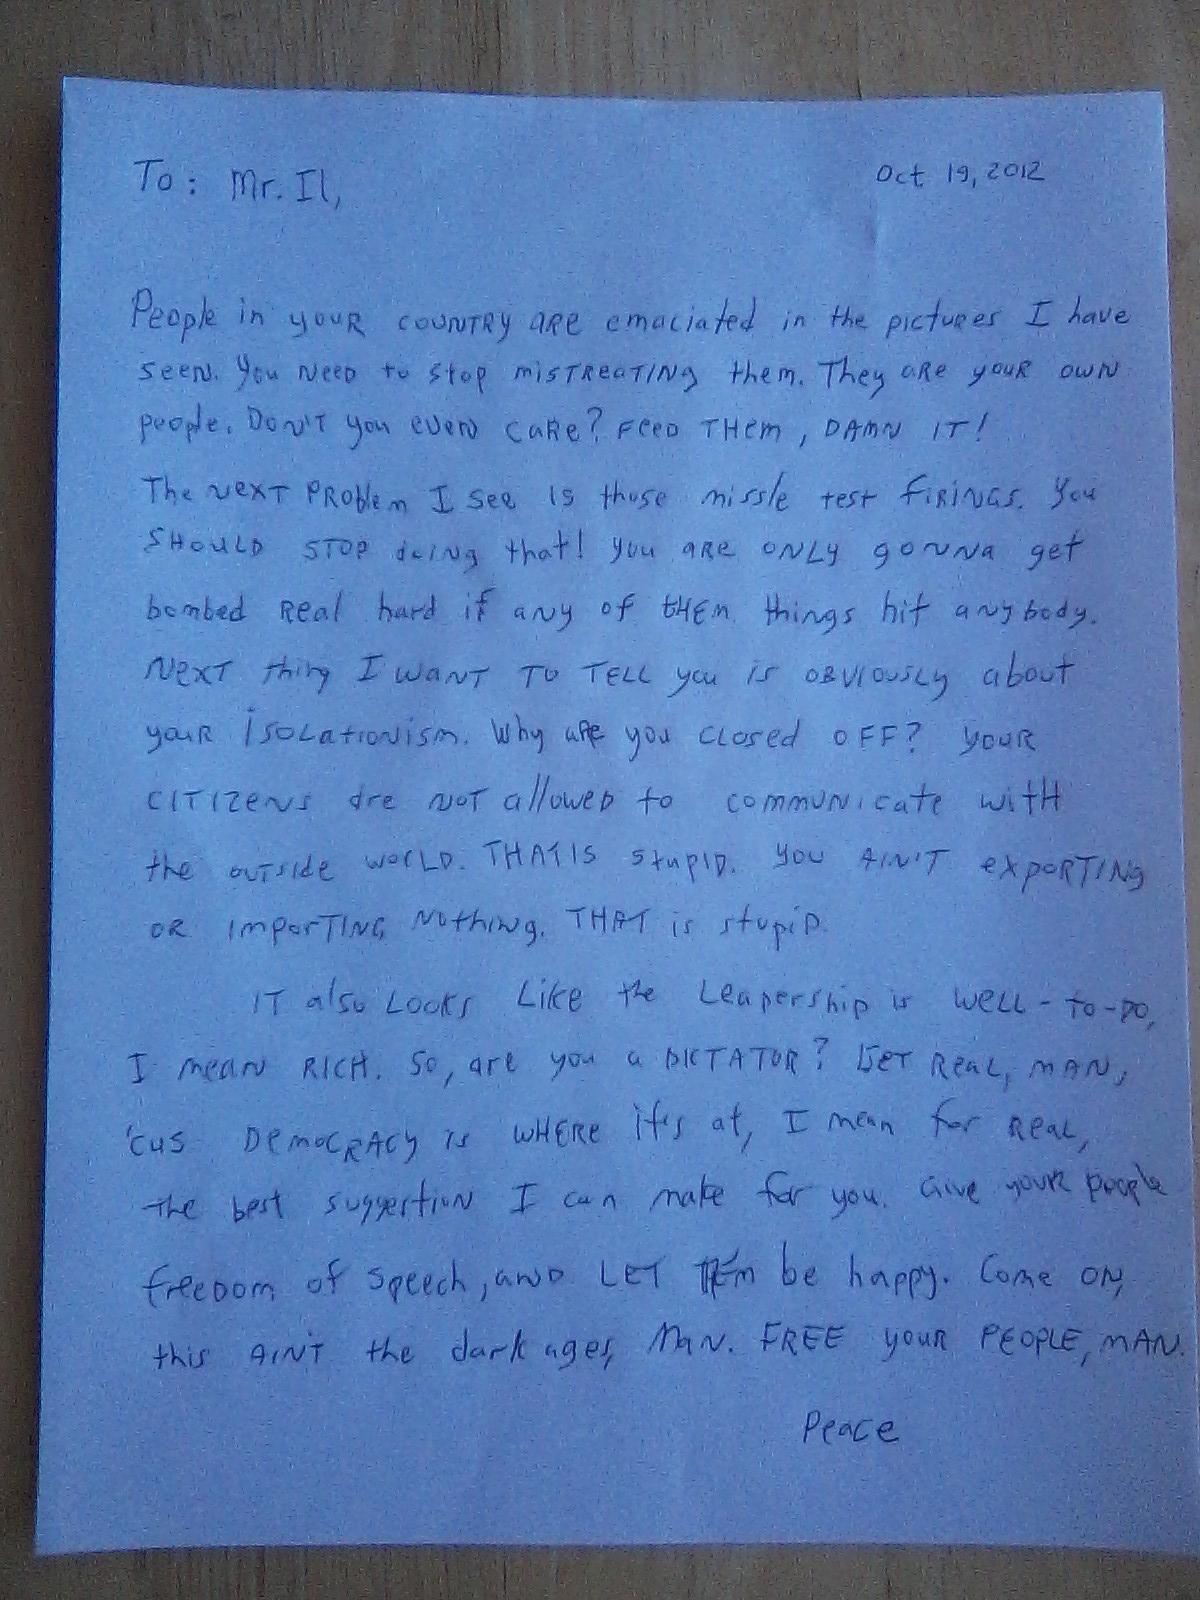 To: Mr. Il,
Oct 19, 2012
People in your country are emaciated in the pictures I have
seen. You need to stop mistreating them. They are your own
people. Don't you even care? Feed THem, DAMN IT!
The next problem I see is those missle test firings. You
SHOULD STOP doing that! you are ONLY gonna get
bombed Real hard if any of tHEm things hit anybody.
Next thing I WANT TO TELL you is OBVIOUSLY about
your isolationism. Why are you closed OFF? your
CITIZENS are NOT allowed to communicate with
the outside world. THAT IS stupid. You AIN'T exporting
OR importing Nothing. THAT is stupid.
IT also Looks Like the Leadership is well-to-do,
I mean RICH. So, are you a DICTATOR? GET Real, man,
'cus Democracy is WHERE it's at, I mean for real,
the best suggestion I can make for you. Give your people
freedom of speech, and LET THEm be happy. Come on,
this AIN'T the dark ages, Man. FREE your PEOPLE, mAN.
Peace